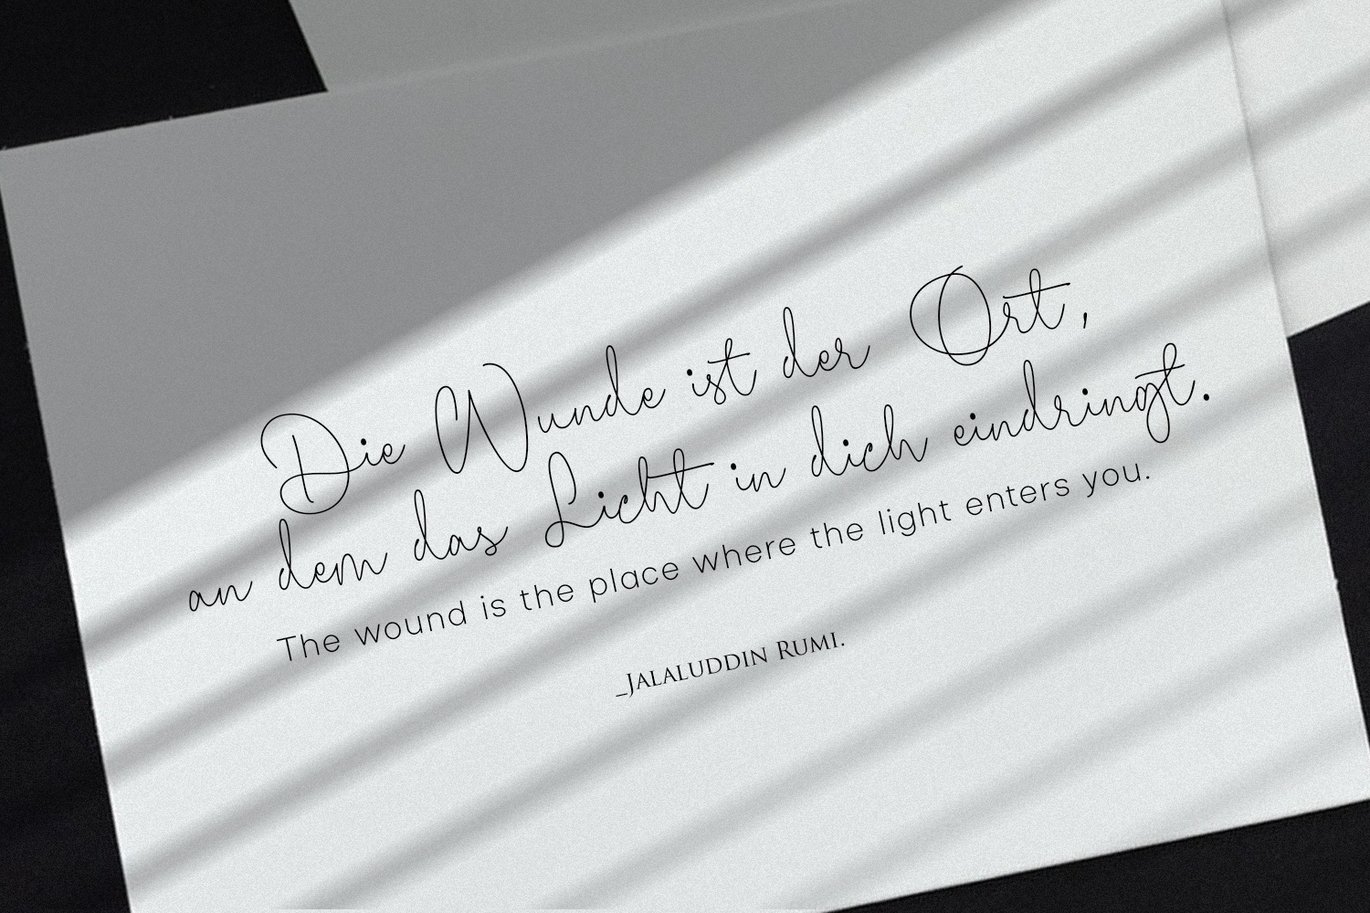 Die Wunde ist der Ort,
an dem das Licht in dich eindringt.
The wound is the place where the light enters you.
_Jalaluddin Rumi.